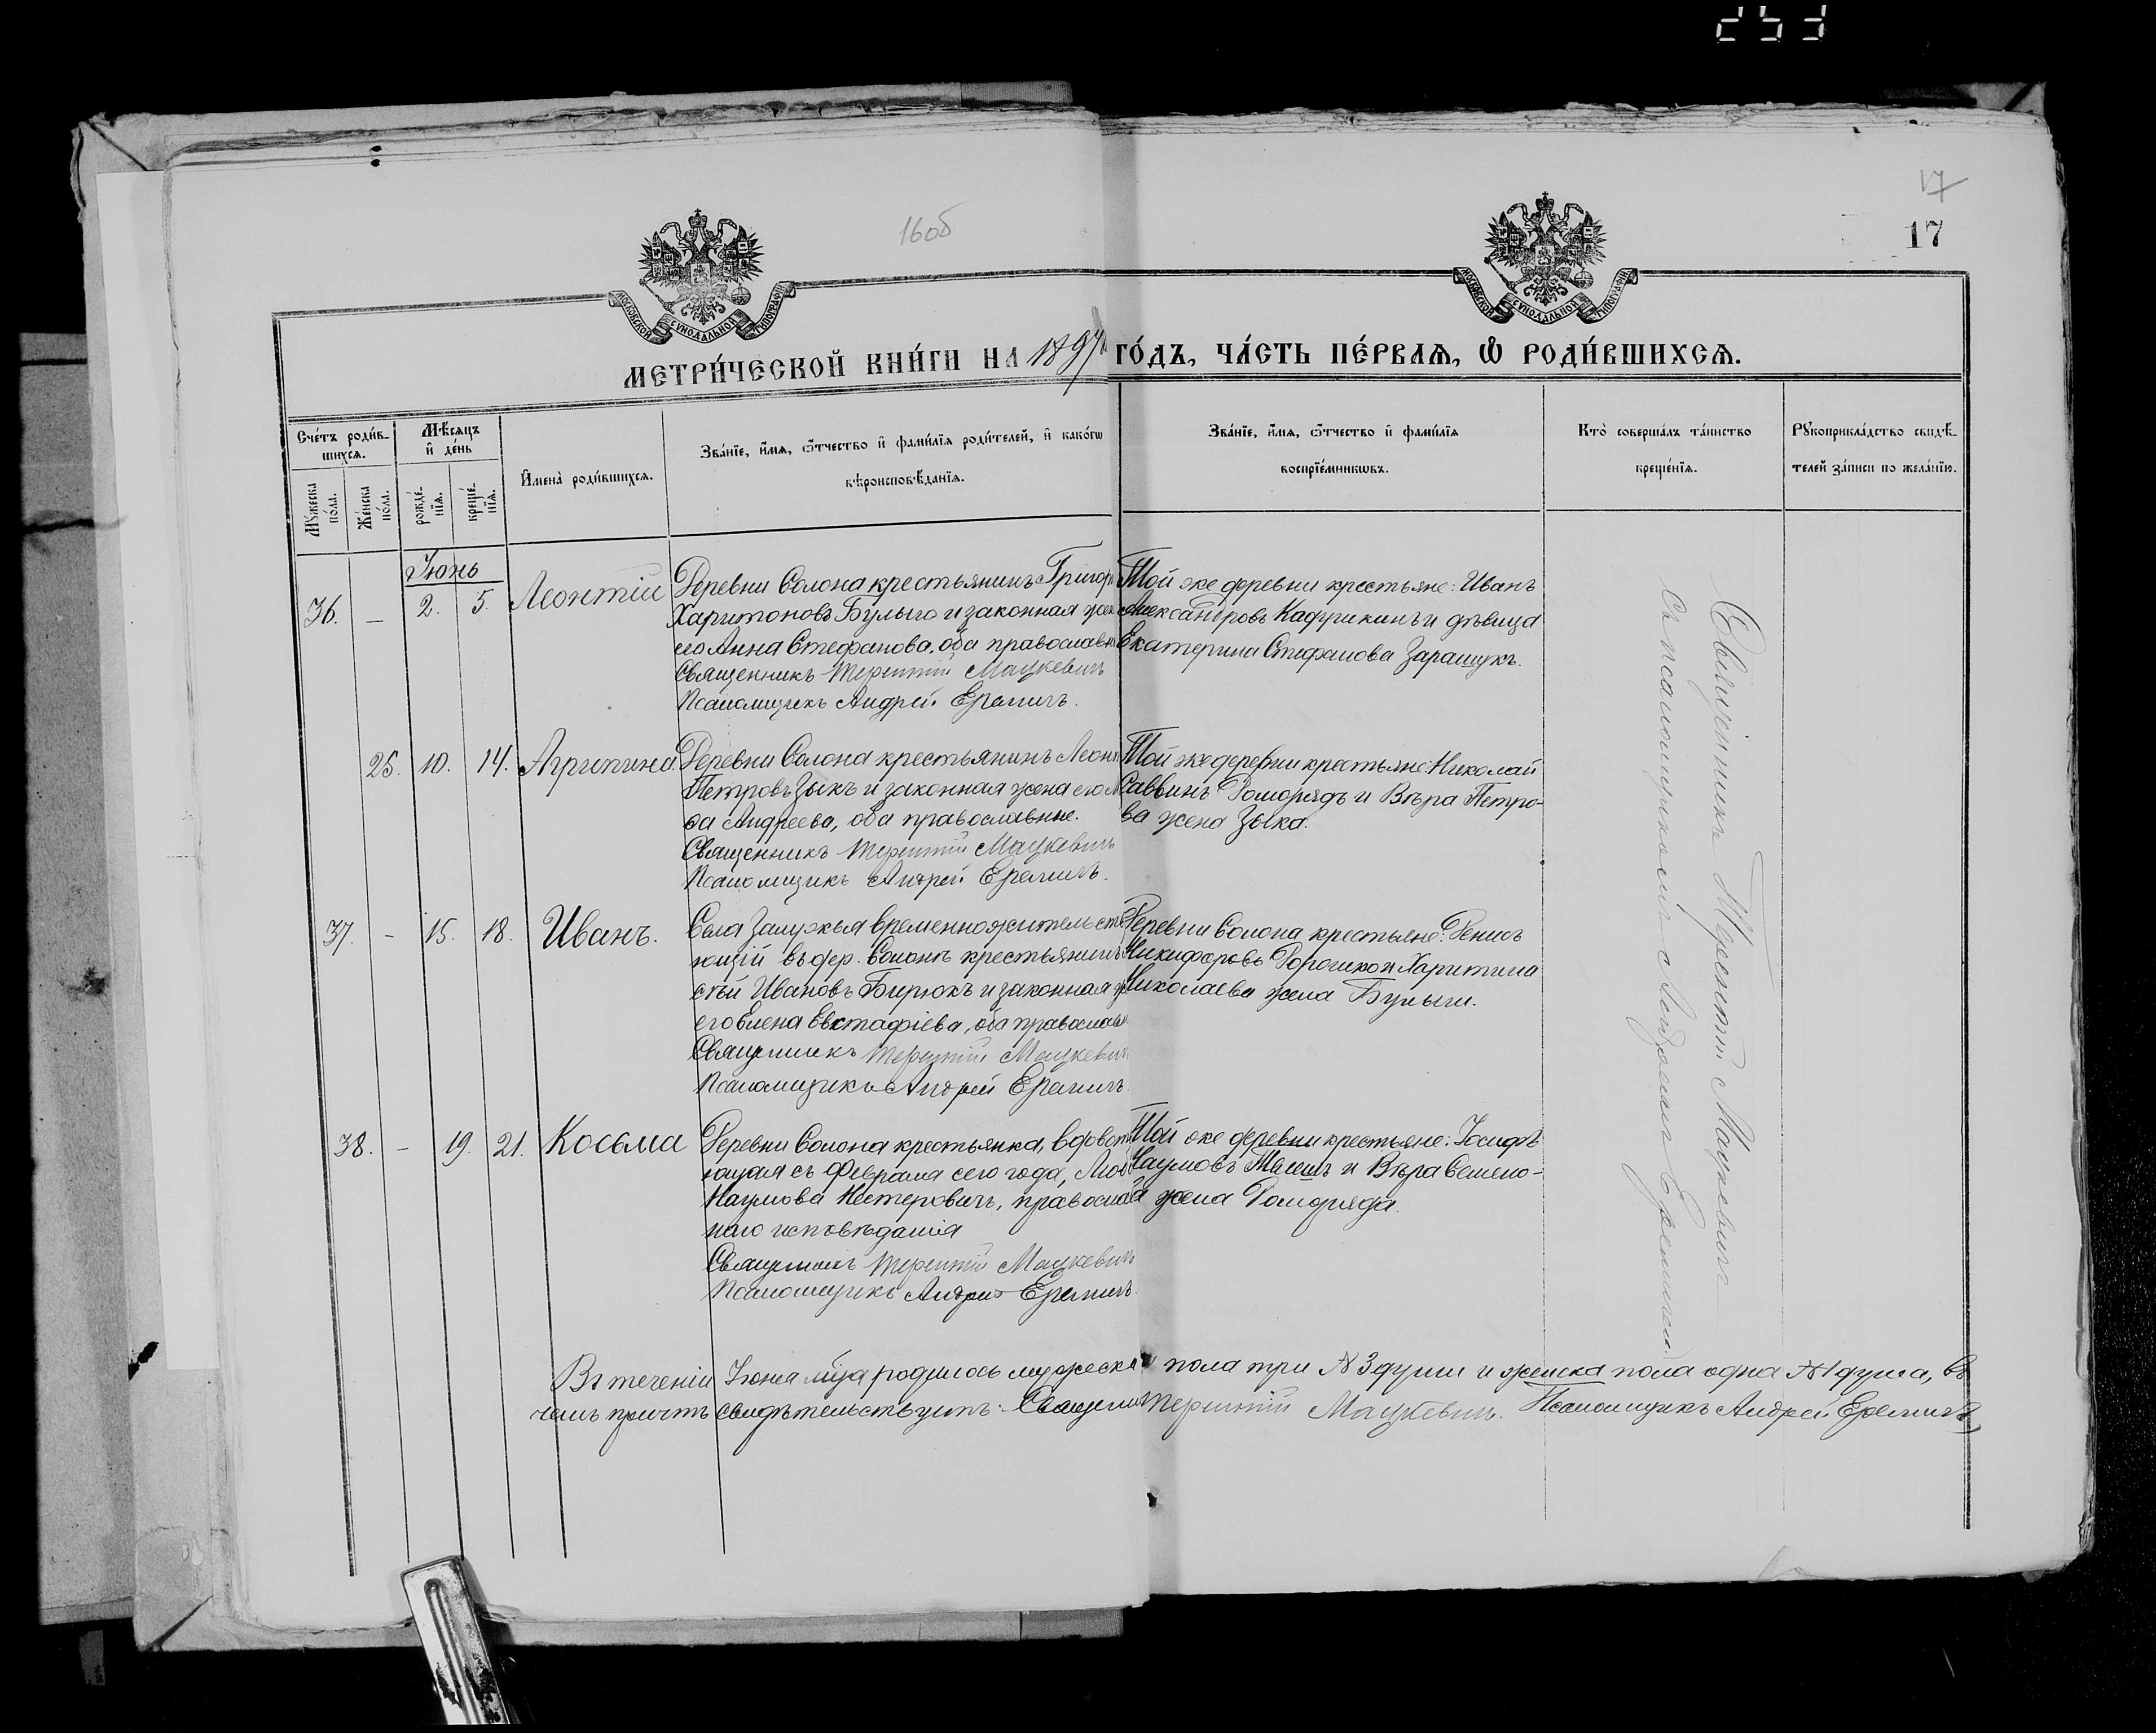 253
17
17
16об
МОСКОВСКОЙ СѴНОДАЛЬНОЙ ТИПОГРАФІИ
МОСКОВСКОЙ СѴНОДАЛЬНОЙ ТИПОГРАФІИ
МЕТРИ́ЧЕСКОЙ КНИ́ГИ НА 1897 ГО́ДЪ, ЧА́СТЬ ПЕ́РВАѦ, Ѡ҃ РОДИ́ВШИХСѦ.
Сче́тъ роди́в-
шихсѧ.
Мѣ́сѧцъ
и҆ де́нь
Мꙋ́жеска
по́ла.
Же́нска
по́ла.
рожде́-
нїѧ.
креще́-
нїѧ.
И҆мена̀ роди́вшихсѧ.
Зва́нїе, и҆́мѧ, ѻ҆́тчество и҆ фами́лїѧ роди́телей, и҆ како́гѡ
вѣроисповѣ́данїѧ.
Зва́нїе, и҆́мѧ, ѻ҆́тчество и҆ фами́лїѧ
воспрїе́мникѡвъ.
Кто̀ соверша́лъ та́инство
креще́нїѧ.
Рꙋкоприкла́дство свидѣ́-
телей за́писи по жела́нїю.
Іюнь
36. – 2. 5. Леонтій
Деревни Солона крестьянинъ Григор
Харитоновъ Булыга и законная жен
его Анна Стефанова, оба православн
Священникъ Терентій Мацкевичъ
Псаломщикъ Андрей Еремичъ.
Той же деревни крестьяне: Иванъ
Александровъ Кадушкинъ и дѣвица
Екатерина Стефанова Заращукъ.
25. 10. 14. Агрипина
Деревни Солона крестьянинъ Леон
Петровъ Зыкъ и законная жена его
ва Андреева, оба православные.
Священникъ Терентій Мацкевичъ
Псаломщикъ Андрей Еремичъ.
Той же деревни крестьяне: Николай
Саввинъ Доморядъ и Вѣра Петро-
ва жена Зыка.
37. – 15. 18. Иванъ.
Села Залужья временножительств
ющій въ дер. Солонъ крестьянинъ
сѣй Ивановъ Бирюкъ и законная ж
его Елена Евстафіева, оба православн
Священникъ Терентій Мацкевичъ
Псаломщикъ Андрей Еремичъ
Деревни Солона крестьяне: Денисъ
Никифоровъ и Харитина
Николаева жена Булыги.
38. – 19. 21. Косьма
Деревни Солона крестьянка, вдовст
ющая съ Февраля сего года,
Наумова Нестеровичъ, православ
наго исповѣданія
Священникъ Терентій Мацкевичъ
Псаломщикъ Андрей Еремичъ.
Той же деревни крестьяне: Іосифъ
Наумовъ и Вѣра Семено-
а жена Доморяда.
Священникъ Терентій Мацкевичъ
съ псаломщикомъ Андреемъ Еремичемъ.
Въ теченіи Іюня м-ца родилось мужеска пола три №3 души и женска пола одна №1 душа, въ
чемъ причтъ свидѣтельствуетъ: Священн Терентій Мацкевичъ. Псаломщикъ Андрей Еремичъ